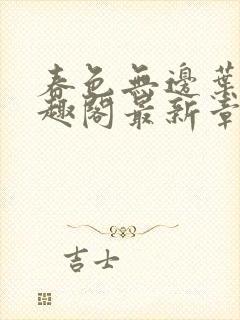 春色無邊葉
趣閣最新章
吉士